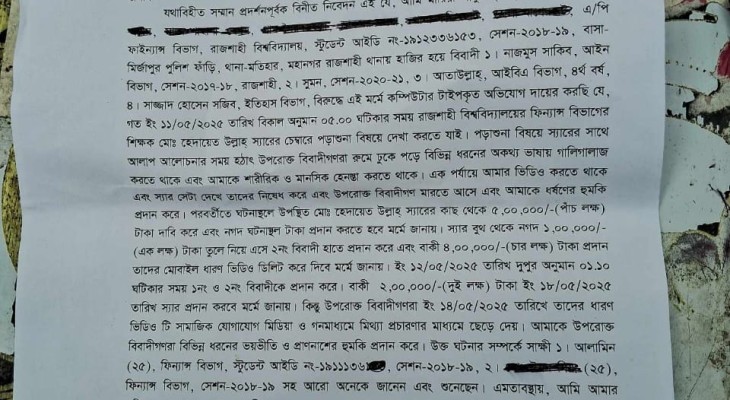 যথাবিহীত সম্মান প্রদর্শনপূর্বক বিনীত নিবেদন এই যে, আমি
এ/পি
বাসা-
ফাইন্যান্স বিভাগ, রাজশাহী বিশ্ববিদ্যালয়, স্টুডেন্ট আইডি নং-১৯১২৩৩৬১৫৩, সেশন-২০১৮-১৯,
মির্জাপুর পুলিশ ফাঁড়ি, থানা-মতিহার, মহানগর রাজশাহী থানায় হাজির হয়ে বিবাদী ১। নাজমুস সাকিব, আইন
বিভাগ, সেশন-২০১৭-১৮, রাজশাহী, ২। সুমন, সেশন-২০২০-২১, ৩। আতাউল্লাহ্, আইবিএ বিভাগ, ৪র্থ বর্ষ,
৪। সাজ্জাদ হোসেন সজিব, ইতিহাস বিভাগ, বিরুদ্ধে এই মর্মে কম্পিউটার টাইপকৃত অভিযোগ দায়ের করছি যে,
গত ইং ১১/০৫/২০২৫ তারিখ বিকাল অনুমান ০৫.০০ ঘটিকার সময় রাজশাহী বিশ্ববিদ্যালয়ের ফিন্যান্স বিভাগের
শিক্ষক মোঃ হেদায়েত উল্লাহ্ স্যারের চেম্বারে পড়াশুনা বিষয়ে দেখা করতে যাই। পড়াশুনা বিষয়ে স্যারের সাথে
আলাপ আলোচনার সময় হঠাৎ উপরোক্ত বিবাদীগণরা রুমে ঢুকে পড়ে বিভিন্ন ধরনের অকথ্য ভাষায় গালিগালাজ
করতে থাকে এবং আমাকে শারীরিক ও মানসিক হেনস্তা করতে থাকে। এক পর্যায়ে আমার ভিডিও করতে থাকে
এবং স্যার সেটা দেখে তাদের নিষেধ করে এবং উপরোক্ত বিবাদীগণ মারতে আসে এবং আমাকে ধর্ষণের হুমকি
প্রদান করে। পরবর্তীতে ঘটনাস্থলে উপস্থিত মোঃ হেদায়েত উল্লাহ্ স্যারের কাছ থেকে ৫,০০,০০০/-(পাঁচ লক্ষ)
টাকা দাবি করে এবং নগদ ঘটনাস্থল টাকা প্রদান করতে হবে মর্মে জানায়। স্যার বুথ থেকে নগদ ১,০০,০০০/-
(এক লক্ষ) টাকা তুলে নিয়ে এসে ২নং বিবাদী হাতে প্রদান করে এবং বাকী ৪,০০,০০০/-(চার লক্ষ) টাকা প্রদান
তাদের মোবাইল ধারণ ভিডিও ডিলিট করে দিবে মর্মে জানায়। ইং ১২/০৫/২০২৫ তারিখ দুপুর অনুমান ০১.১০
ঘটিকার সময় ১নং ও ২নং বিবাদীকে প্রদান করে। বাকী ২,০০,০০০/-(দুই লক্ষ) টাকা ইং ১৮/০৫/২০২৫
তারিখ স্যার প্রদান করবে মর্মে জানায়। কিন্তু উপরোক্ত বিবাদীগণরা ইং ১৪/০৫/২০২৫ তারিখে তাদের ধারণ
ভিডিও টি সামাজিক যোগাযোগ মিডিয়া ও গনমাধ্যমে মিথ্যা প্রচারণার মাধ্যমে ছেড়ে দেয়। আমাকে উপরোক্ত
বিবাদীগণরা বিভিন্ন ধরনের ভয়ভীতি ও প্রাণনাশের হুমকি প্রদান করে। উক্ত ঘটনার সম্পর্কে সাক্ষী ১। আলামিন
(২৫), ফিন্যান্স বিভাগ, স্টুডেন্ট আইডি নং-১৯১১১৩৬১ , সেশন-২০১৮-১৯, ২। (২৫),
ফিন্যান্স বিভাগ, সেশন-২০১৮-১৯ সহ আরো অনেকে জানেন এবং শুনেছেন। এমতাবস্থায়, আমি আমার